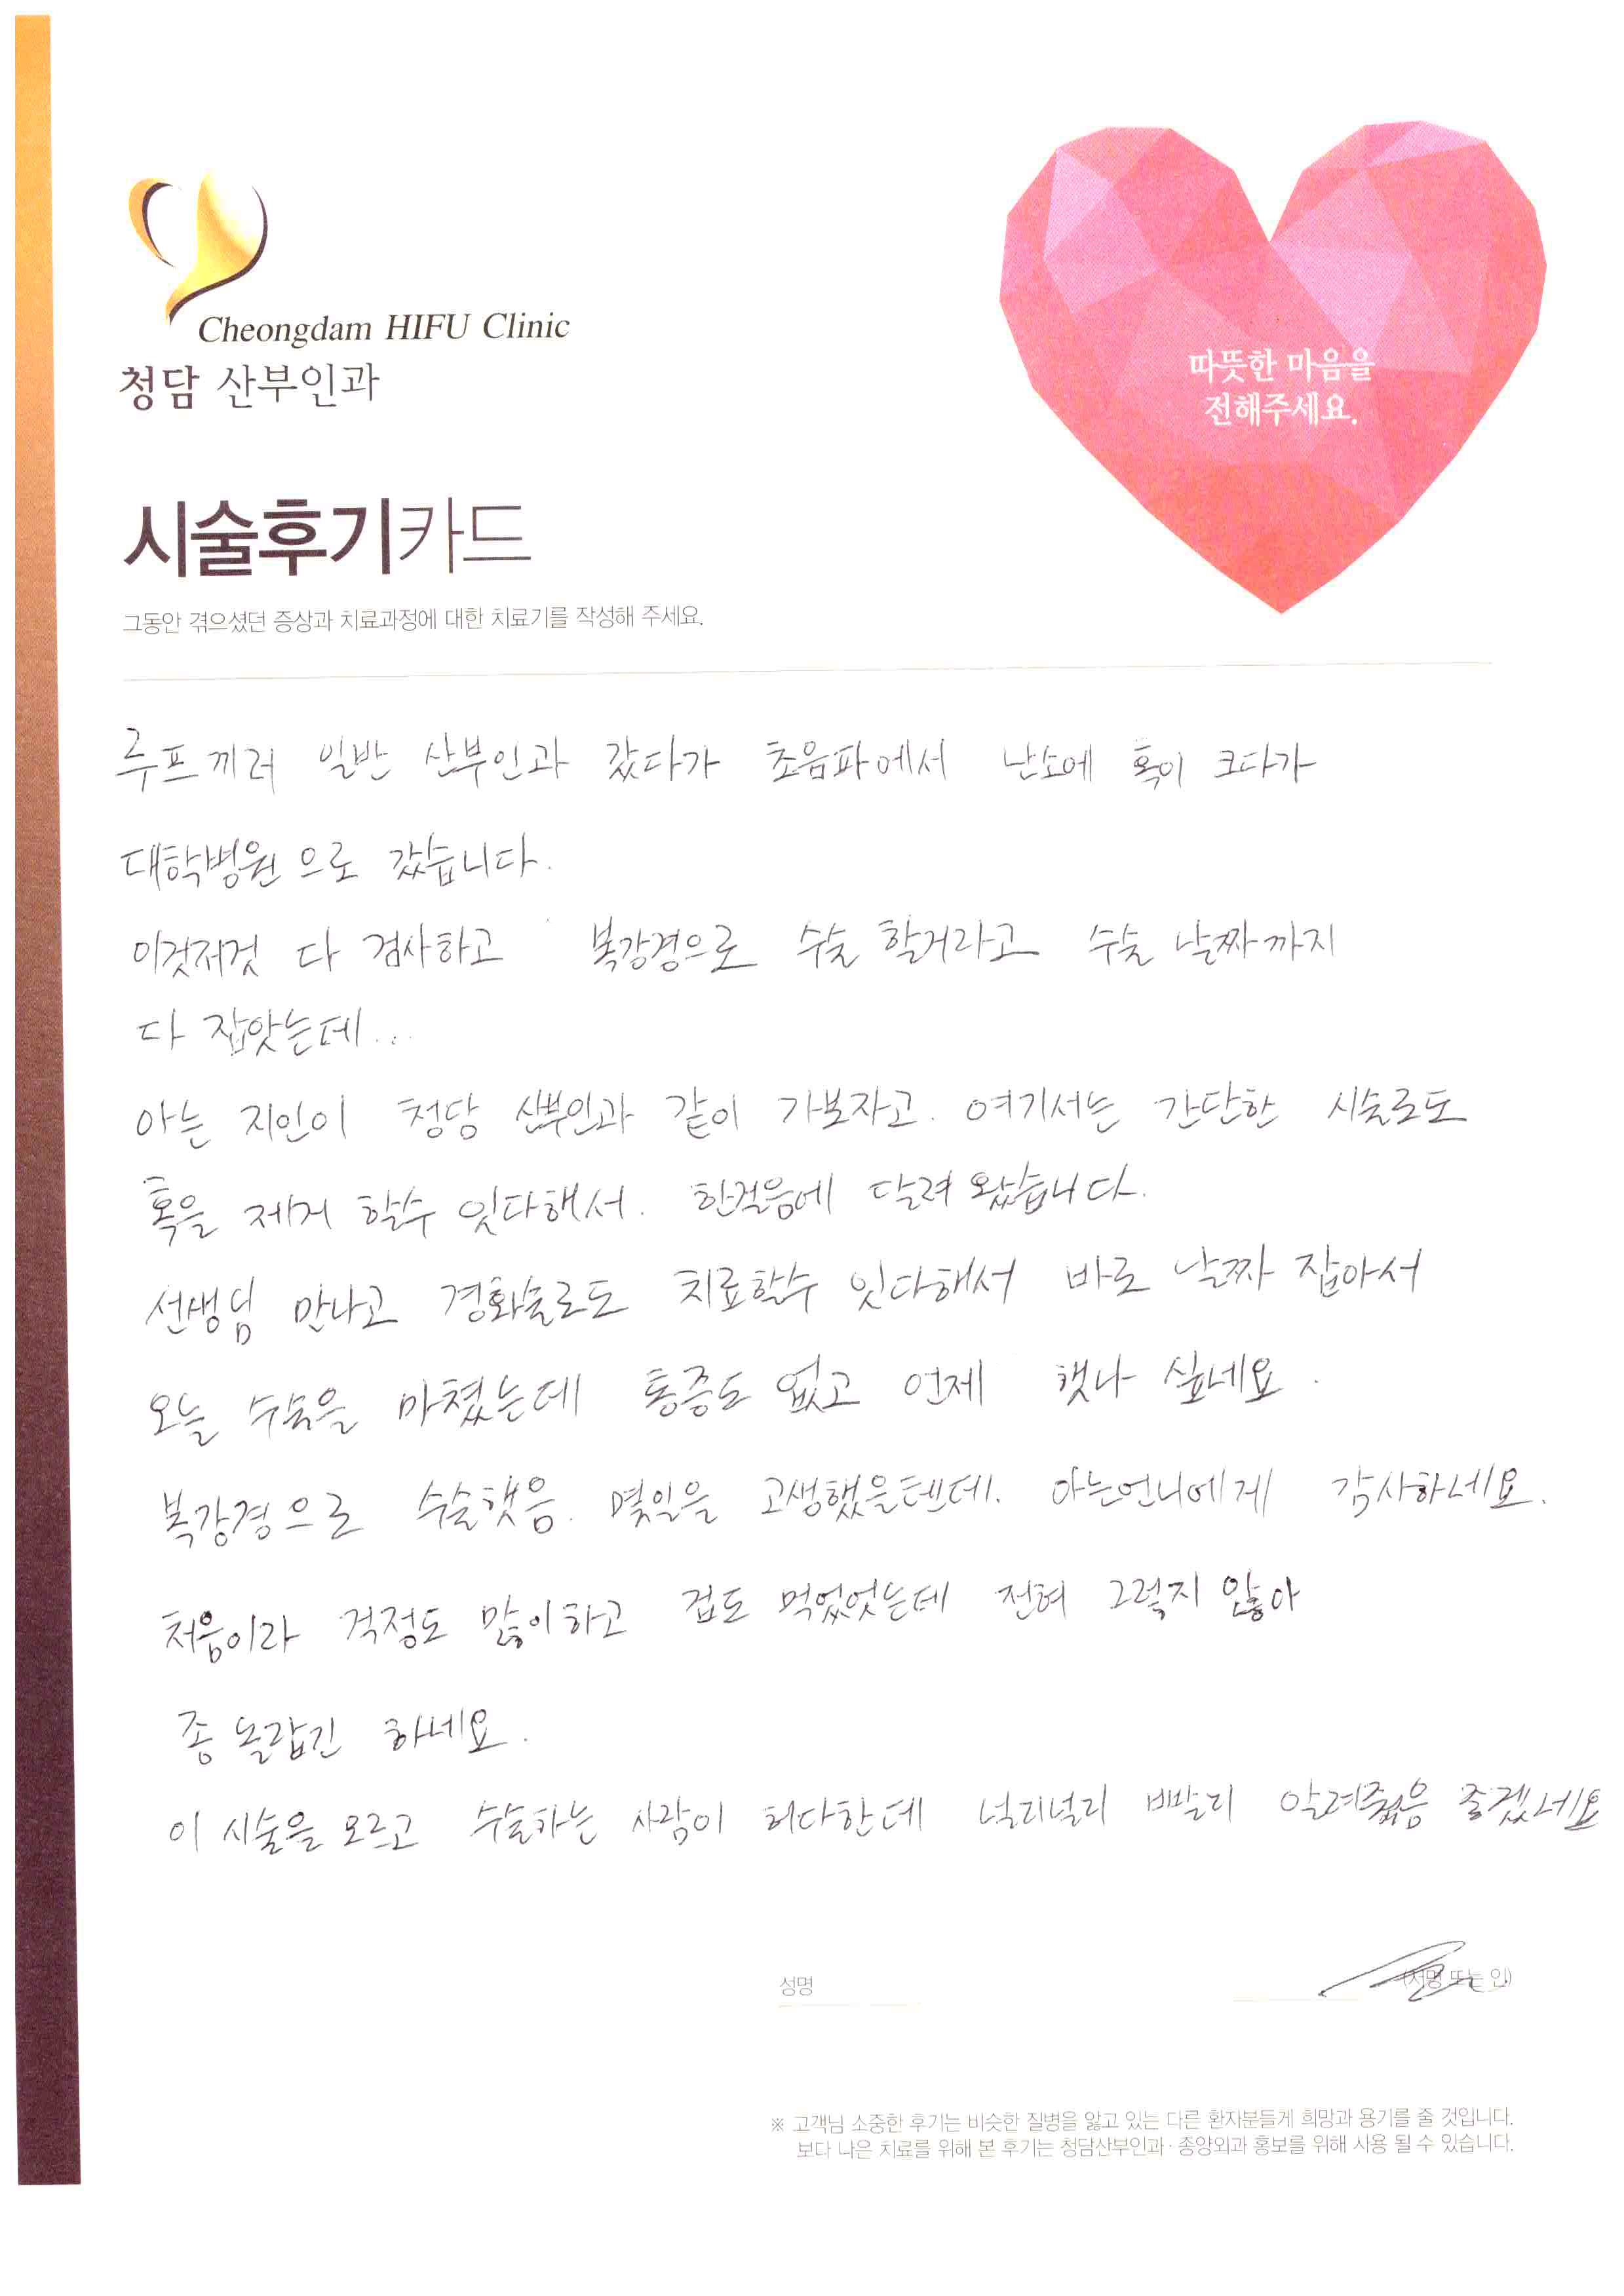 Cheongdam HIFU Clinic
청담 산부인과
따뜻한 마음을
전해주세요.
시술후기카드
그동안 겪으셨던 증상과 치료과정에 대한 치료기를 작성해 주세요.
루프끼러 일반 산부인과 갔다가 초음파에서 난소에 혹이 크다가
대학병원으로 갔습니다.
이것저것 다 검사하고 복강경으로 수술 할거라고 수술 날짜까지
다 잡앗는데...
아는 지인이 청담 산부인과 같이 가보자고. 여기서는 간단한 시술로도
혹을 제거 할수 잇다해서. 한걸음에 달려 왔습니다.
선생님 만나고 경화술로도 치료할수 잇다해서 바로 날짜 잡아서
오늘 수술을 마쳤는데 통증도 없고 언제 햇나 싶네요.
복강경으로 수술햇음. 몇일을 고생했을텐데. 아는언니에게 감사하네요.
처음이라 걱정도 많이하고 겁도 먹었엇는데 전혀 그렇지 않아
좀 놀랍긴 하네요.
이 시술을 모르고 수술하는 사람이 허다한데 널리널리 빨리 알려줬음 좋겠네요
성명
(서명 또는 인)
※ 고객님 소중한 후기는 비슷한 질병을 앓고 있는 다른 환자분들게 희망과 용기를 줄 것입니다.
보다 나은 치료를 위해 본 후기는 청담산부인과·종양외과 홍보를 위해 사용 될 수 있습니다.